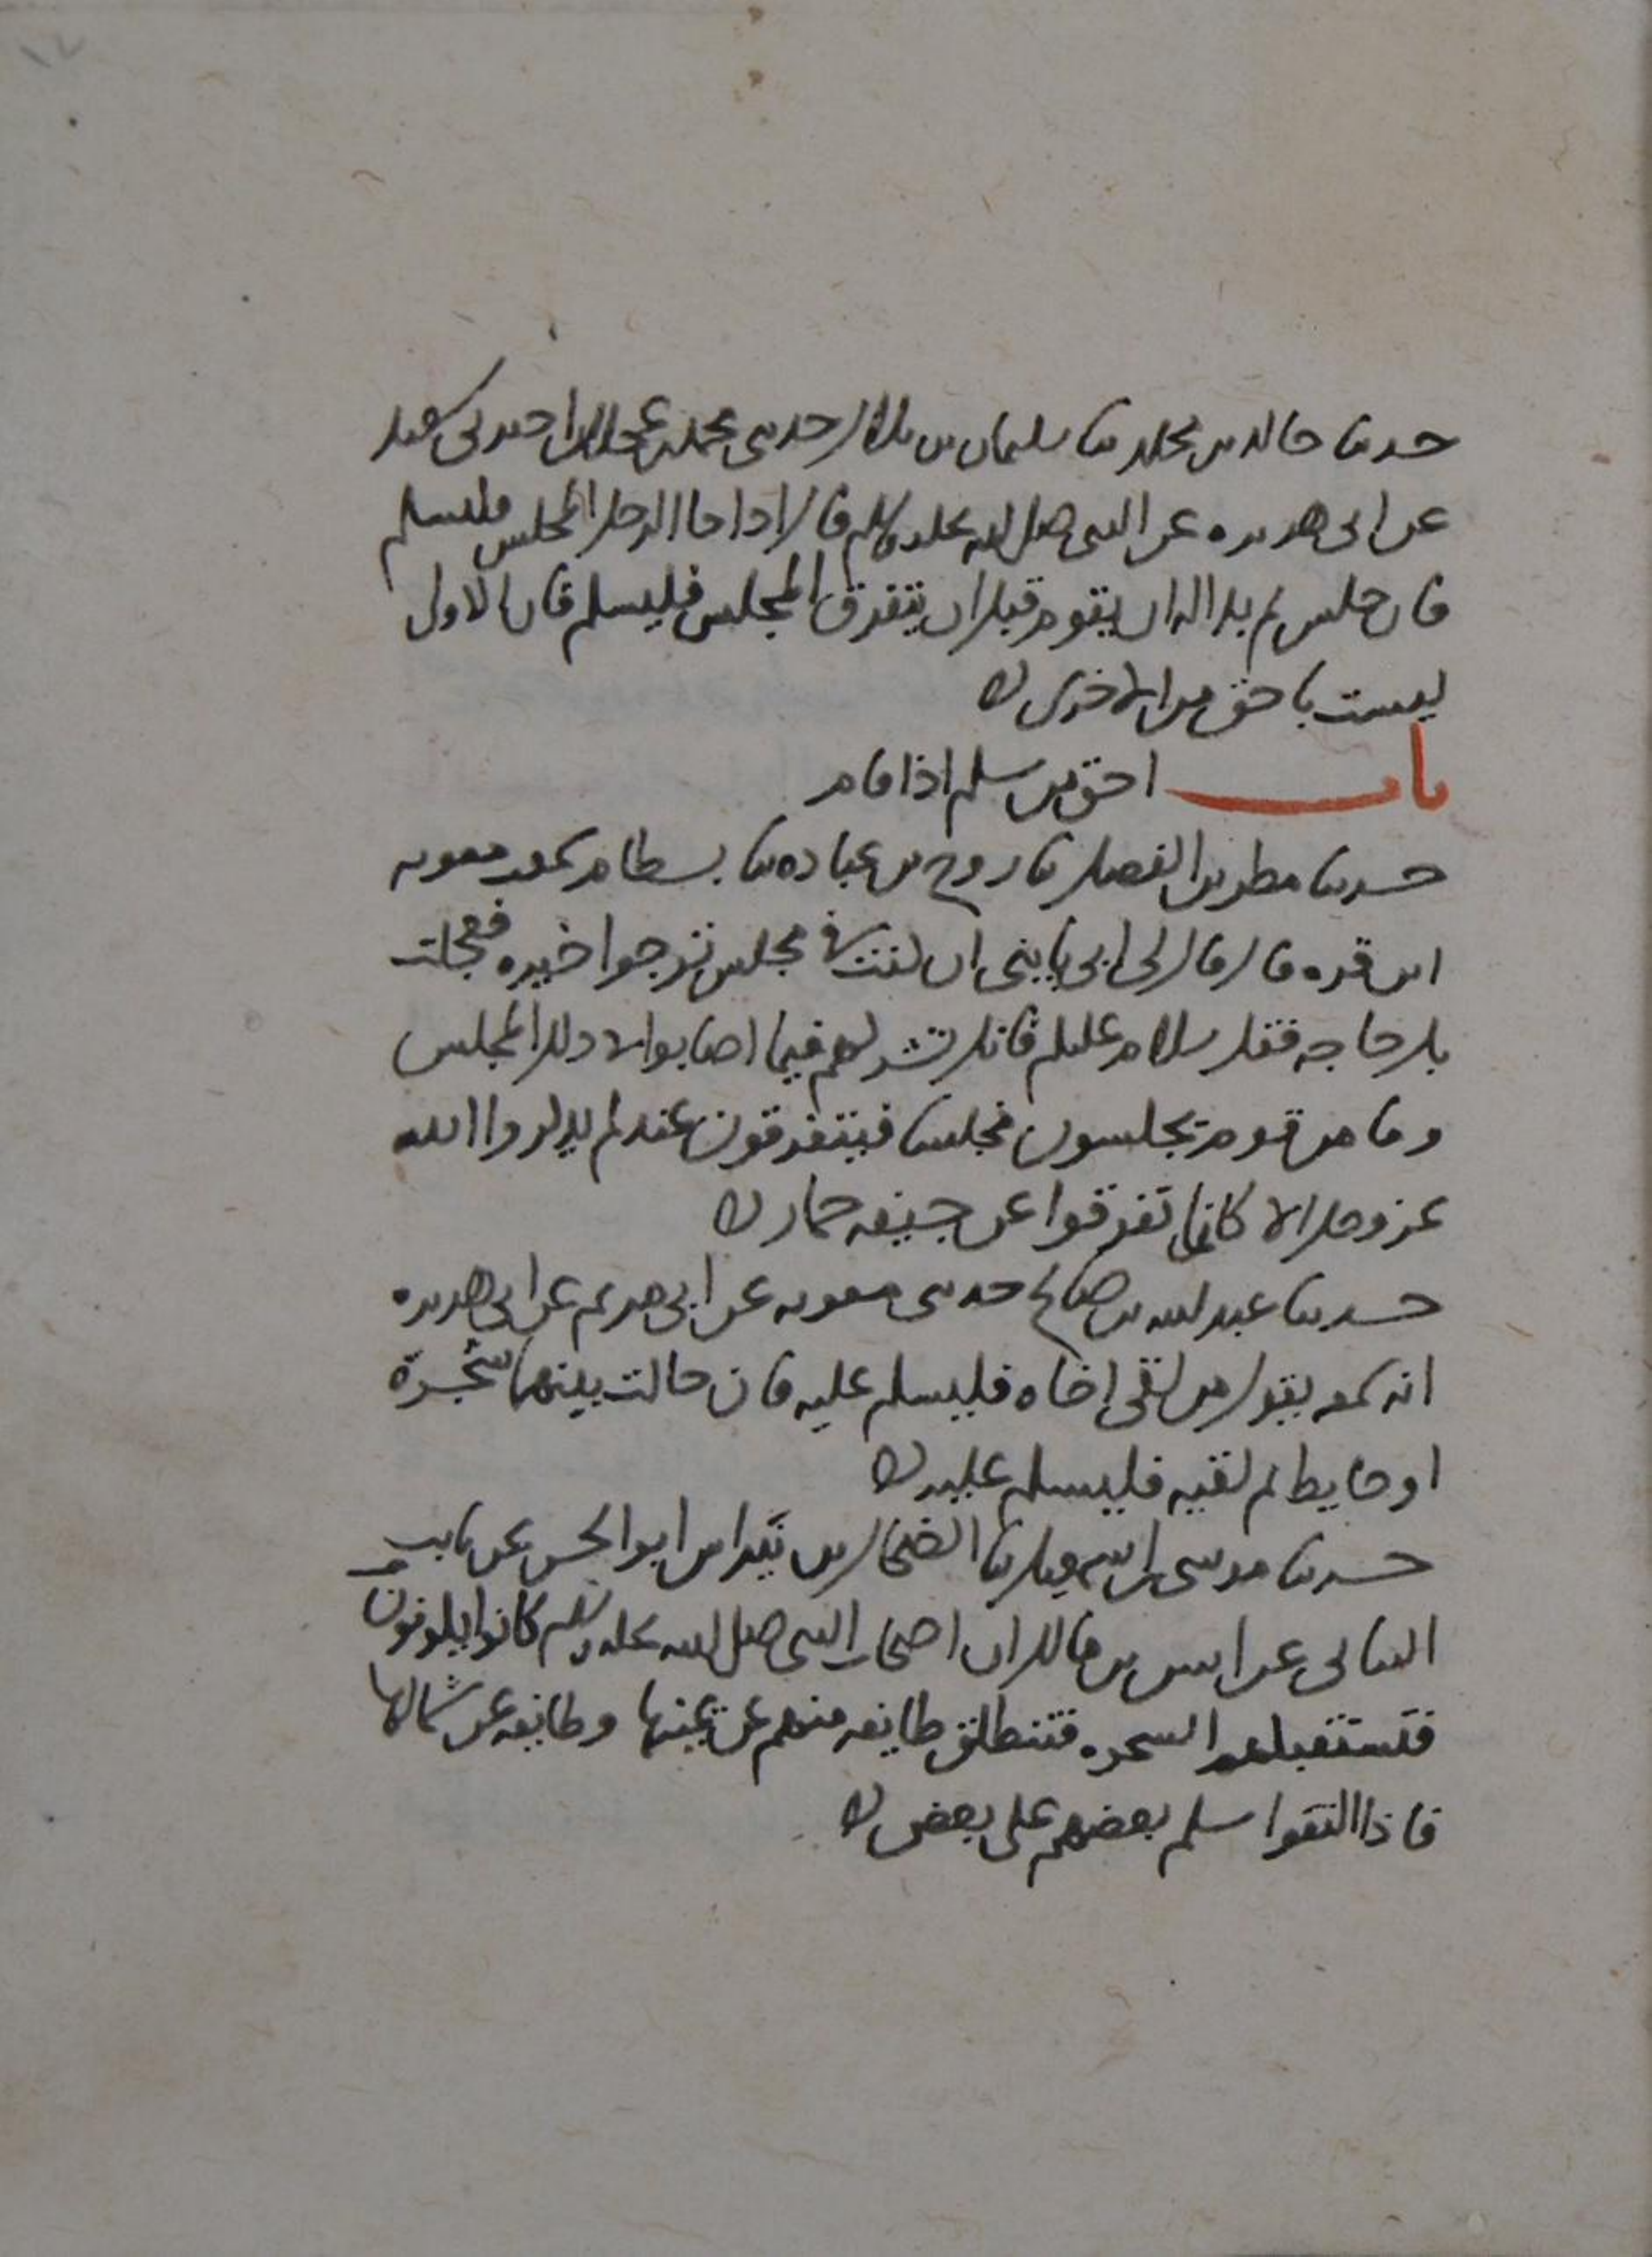 حدثنا خالد بن مخلد ثنا سليمان بن بلال حدثني محمد بن عجلان اخبرني سعيد
عن ابي هريره عن النبي صلى الله عليه وسلم قال اذا جا الرجل المجلس فليسلم
فان جلس ثم بدا له ان يقوم قبل ان يتفرق المجلس فليسلم فان الاولى
ليست باحق من الاخرى
باب احق من سلم اذا قام
حدثنا مطر بن الفضل ثنا روح بن عباده ثنا بسطام سمعت معويه
ابن قره قال قال لي ابي يا بني ان كنت في مجلس ترجوا خيره فعجلت
بك حاجه فقل سلام عليكم فانك تشركهم فيما اصابوا في ذلك المجلس
وما من قوم يجلسون مجلسا فيتفرقون عنه لم يذكروا الله
عز وجل الا كانما تفرقوا عن جيفه حمار
حدثنا عبد الله بن صالح حدثني معويه عن ابي مريم عن ابي هريره
انه سمعه يقول من لقي اخاه فليسلم عليه فان حالت بينهما شجرة
او حايط ثم لقيه فليسلم عليه
حدثنا موسى بن اسمعيل ثنا الضحاك بن نبراس ابو الحسن عن ثابت
البناني عن انس بن مالك ان اصحاب النبي صلى الله عليه وسلم كانوا يكونون
فتستقبلهم الشجره فتنطلق طايفه منهم عن يمينها وطايفه عن شمالها
فاذا التقوا سلم بعضهم على بعض